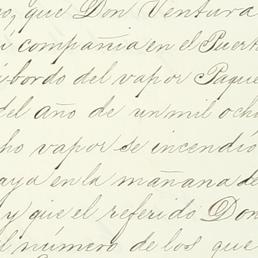 o, que Don Ventura
i compañia en el Puert
abordo del vapor Paque
del año de un mil ocho
ho vapor se incendió
aya en la mañana de
y que el referido Don
l número de los que